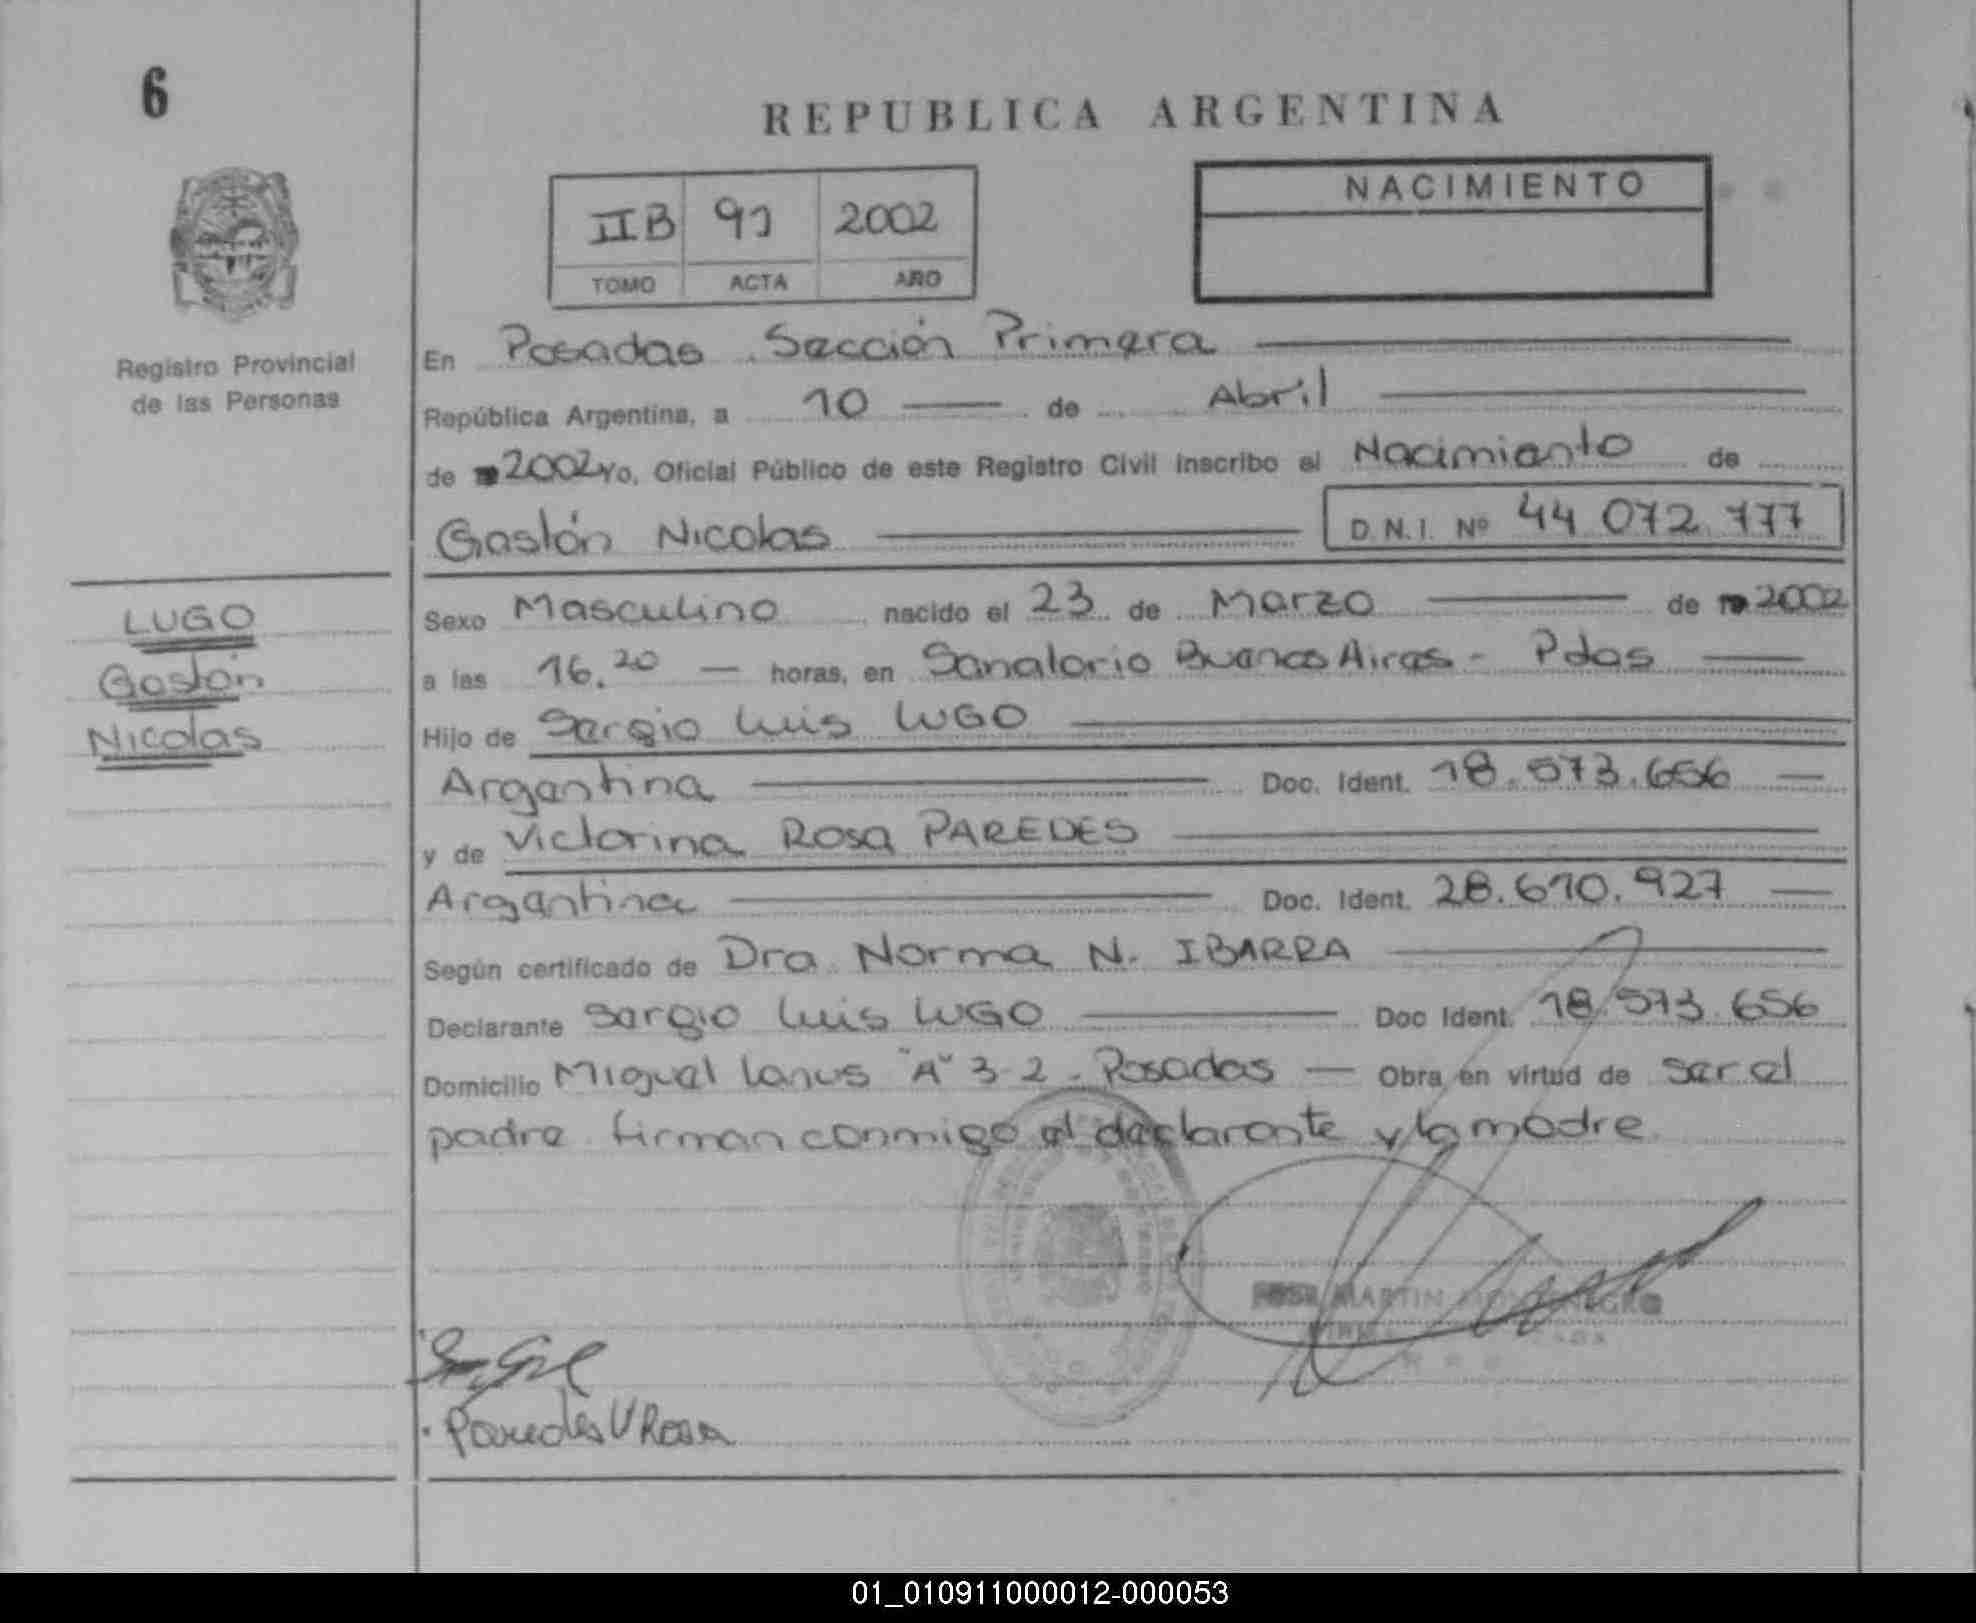 6
REPUBLICA ARGENTINA
IIB 91 2002
TOMO ACTA AÑO
NACIMIENTO
Registro Provincial
de las Personas
En Posadas Sección Primera
República Argentina, a 10 de Abril
de 2002 Yo, Oficial Público de este Registro Civil inscribo el Nacimiento de
Gastón Nicolas D.N.I. Nº 44 072 777
LUGO
Gastón
Nicolas
Sexo Masculino nacido el 23 de Marzo de 2002
a las 16.20 horas, en Sanatorio Buenos Aires - Pdas
Hijo de Sergio Luis LUGO
Argentina Doc. Ident. 18.573.656
y de Victorina Rosa PAREDES
Argentina Doc. Ident. 28.610.927
Según certificado de Dra Norma N. IBARRA
Declarante Sergio Luis LUGO Doc Ident. 18.573.656
Domicilio Miguel Lanus "A" 3-2 - Posadas Obra en virtud de ser el
padre firman conmigo el declarante y la madre
MARTIN
Paredes V Rosa
01_010911000012-000053